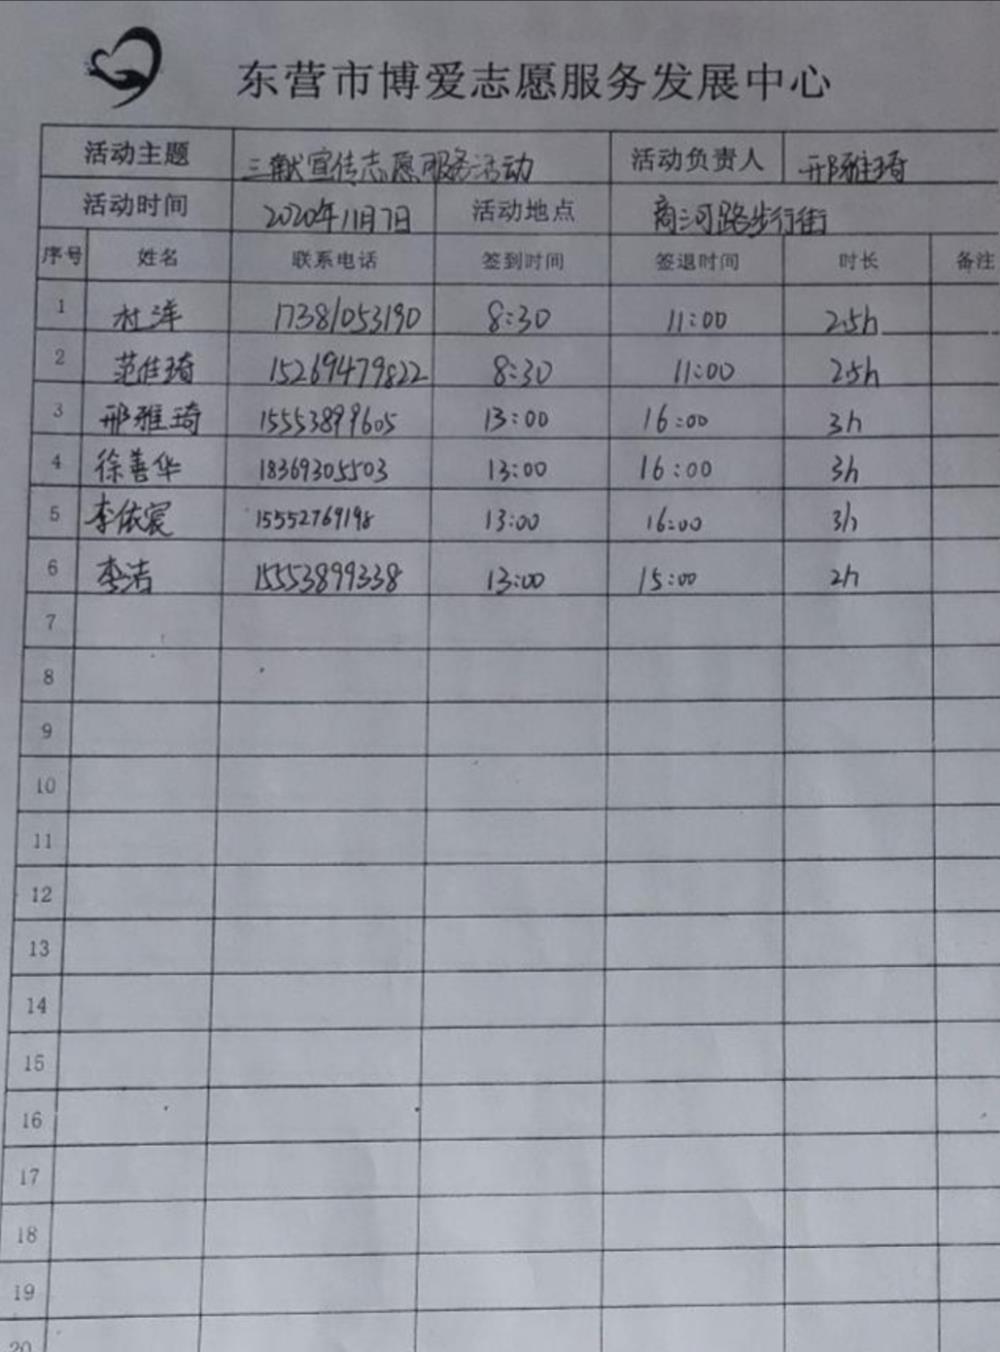 东营市博爱志愿服务发展中心
活动主题 三献宣传志愿服务活动 活动负责人 邢雅琦
活动时间 2020年11月7日 活动地点 商河路步行街
序号 姓名 联系电话 签到时间 签退时间 时长 备注
1 杜洋 17381053190 8:30 11:00 2.5h
2 范佳琦 15269479822 8:30 11:00 2.5h
3 邢雅琦 15553899605 13:00 16:00 3h
4 徐善华 18369305503 13:00 16:00 3h
5 李依宸 15552769198 13:00 16:00 3h
6 李洁 15553899338 13:00 15:00 2h
7
8
9
10
11
12
13
14
15
16
17
18
19
20